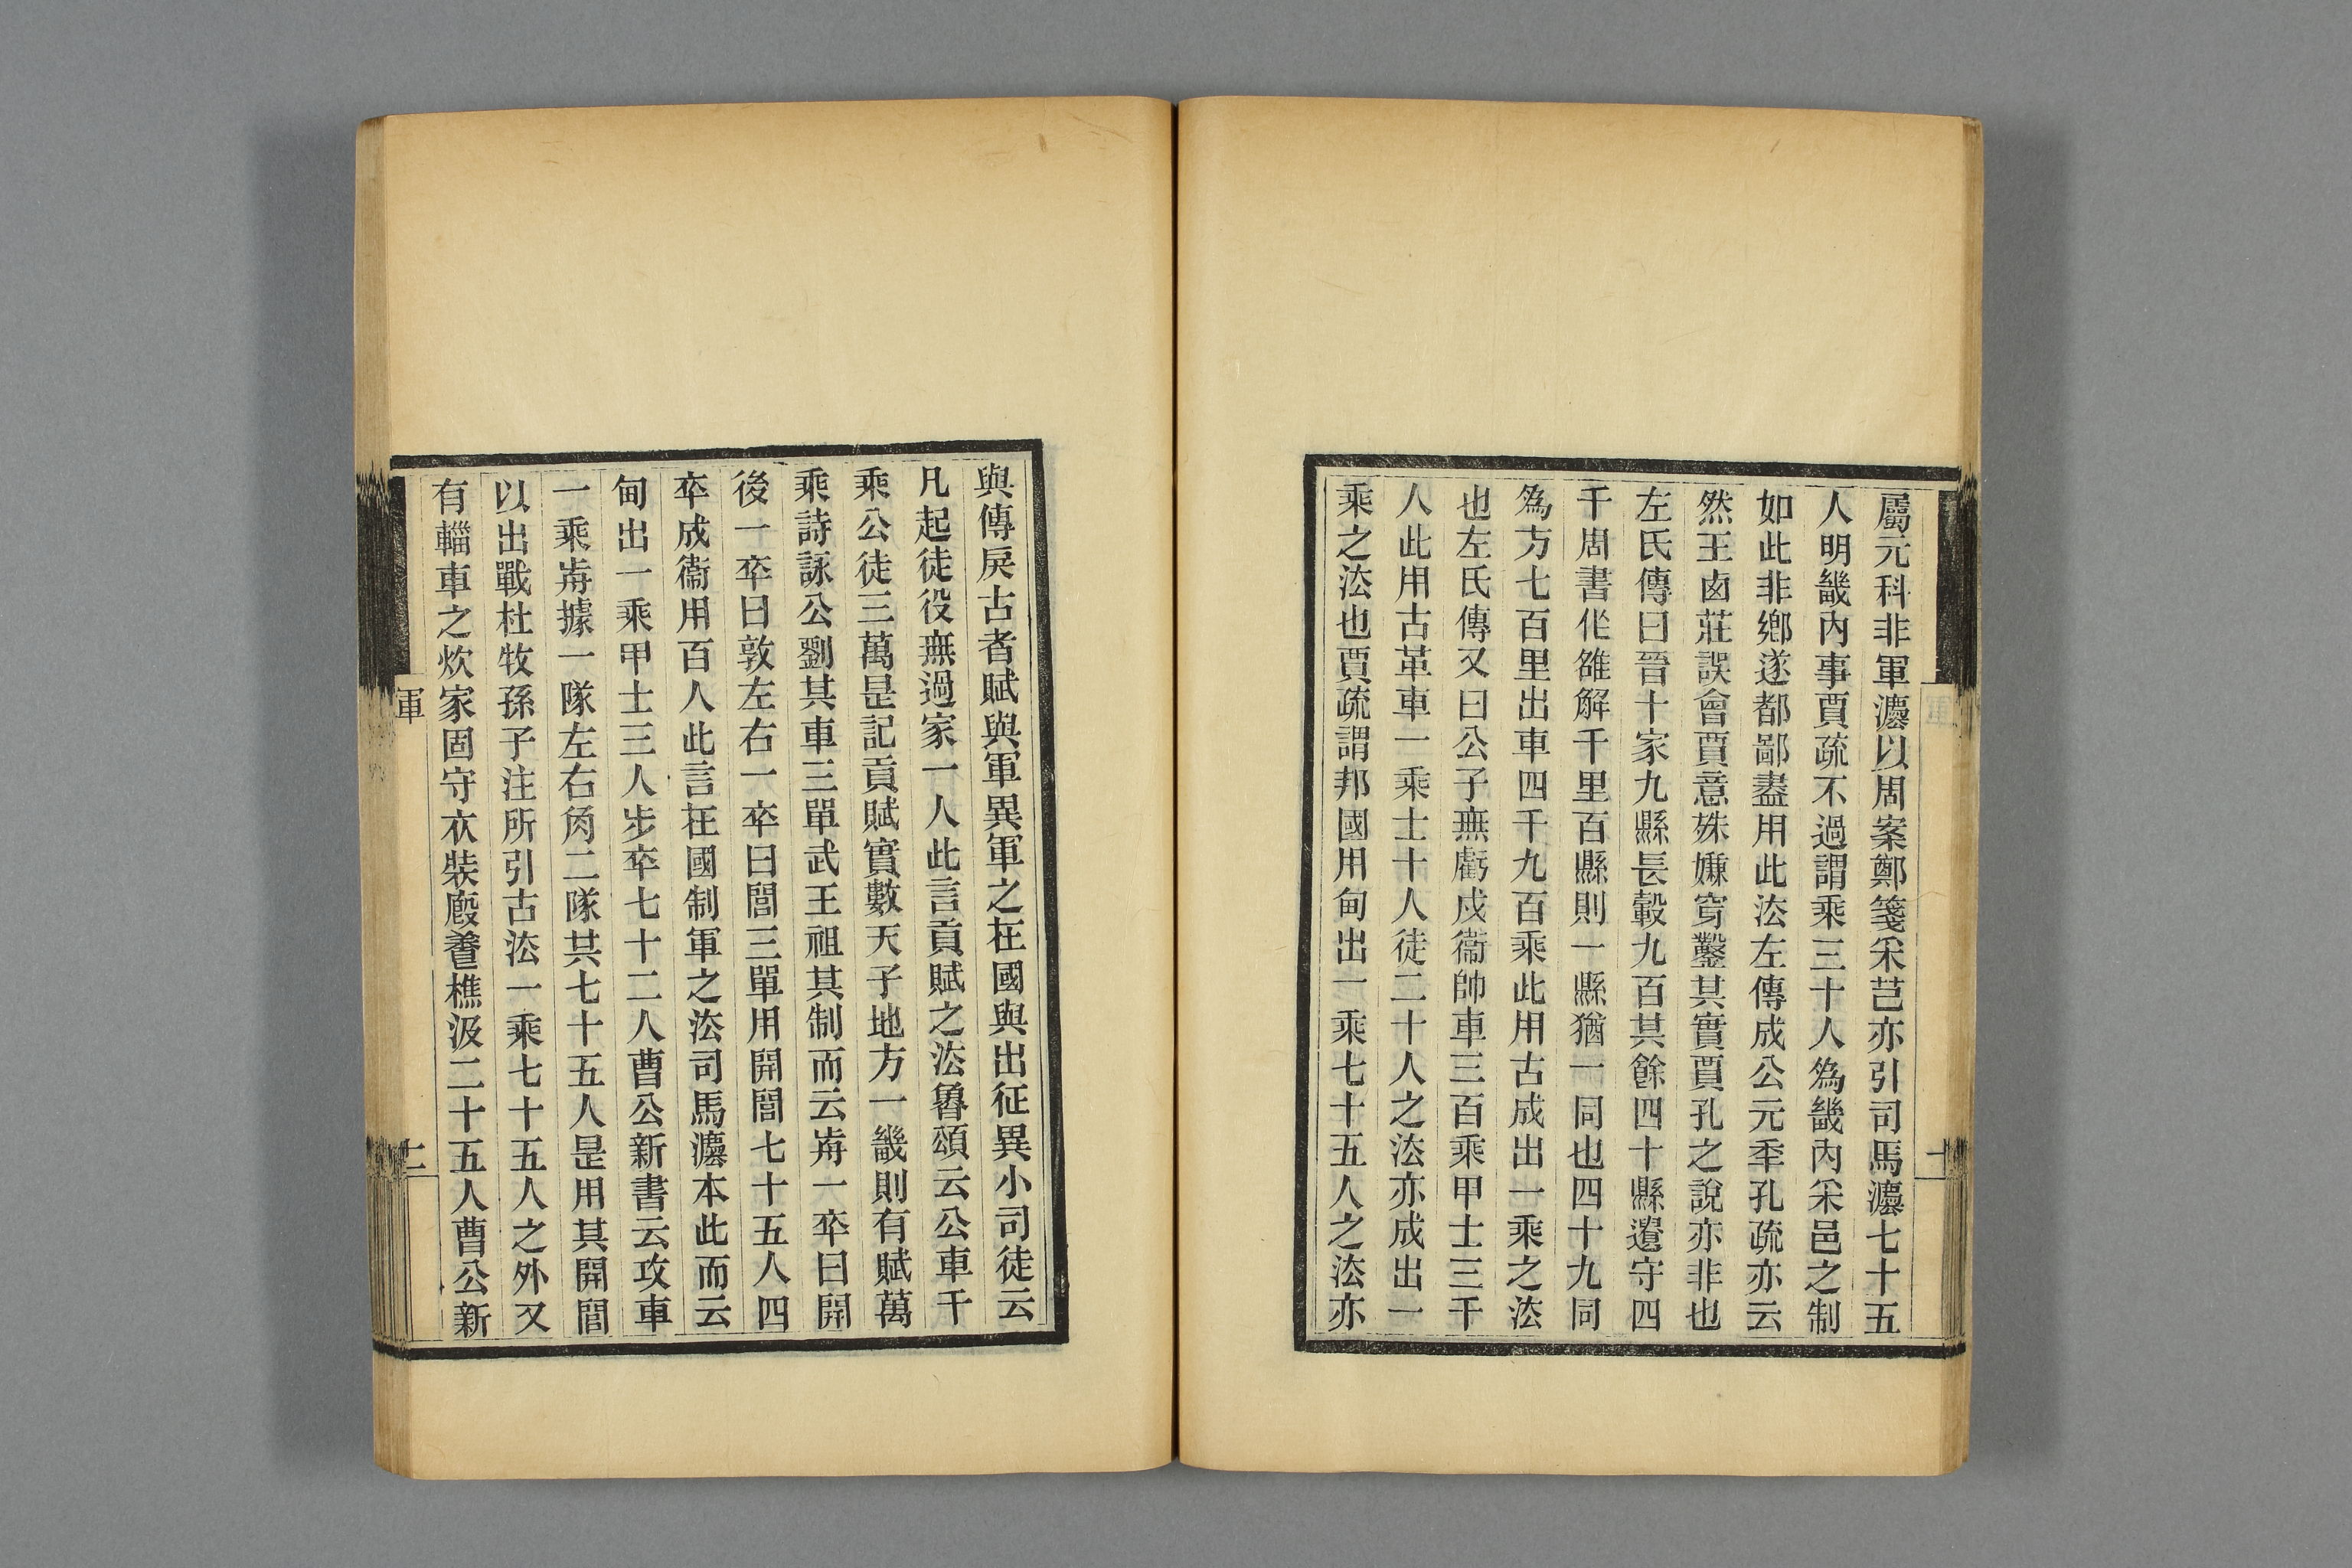 屬元科非軍灋以周案鄭箋采芑亦引司馬灋七十五
人明畿內事賈疏不過謂乘三十人爲畿內采邑之制
如此非鄉遂都鄙盡用此㳒左傳成公元秊孔疏亦云
然王鹵莊誤會賈意殊嫌穿鑿其實賈孔之說亦非也
左氏傳曰晉十家九縣長轂九百其餘四十縣遺守四
千周書作雒解千里百縣則一縣猶一同也四十九同
爲方七百里出車四千九百乘此用古成出一乘之㳒
也左氏傳又曰公子無虧戍衞帥車三百乘甲士三千
人此用古革車一乘士十人徒二十人之㳒亦成出一
乘之㳒也賈疏謂邦國用甸出一乘七十五人之㳒亦
與傳戾古者賦與軍異軍之在國與出征異小司徒云
凡起徒役無過家一人此言貢賦之㳒魯頌云公車千
乘公徒三萬是記貢賦實數天子地方一畿則有賦萬
乘詩詠公劉其車三單武王祖其制而云歬一卒曰開
後一卒曰敦左右一卒曰閭三單用開閭七十五人四
卒成衞用百人此言在國制軍之㳒司馬灋本此而云
甸出一乘甲士三人步卒七十二人曹公新書云攻車
一乘歬據一隊左右角二隊共七十五人是用其開閭
以出戰杜牧孫子注所引古㳒一乘七十五人之外又
有輜車之炊家固守衣裝廄養樵汲二十五人曹公新
軍
十二